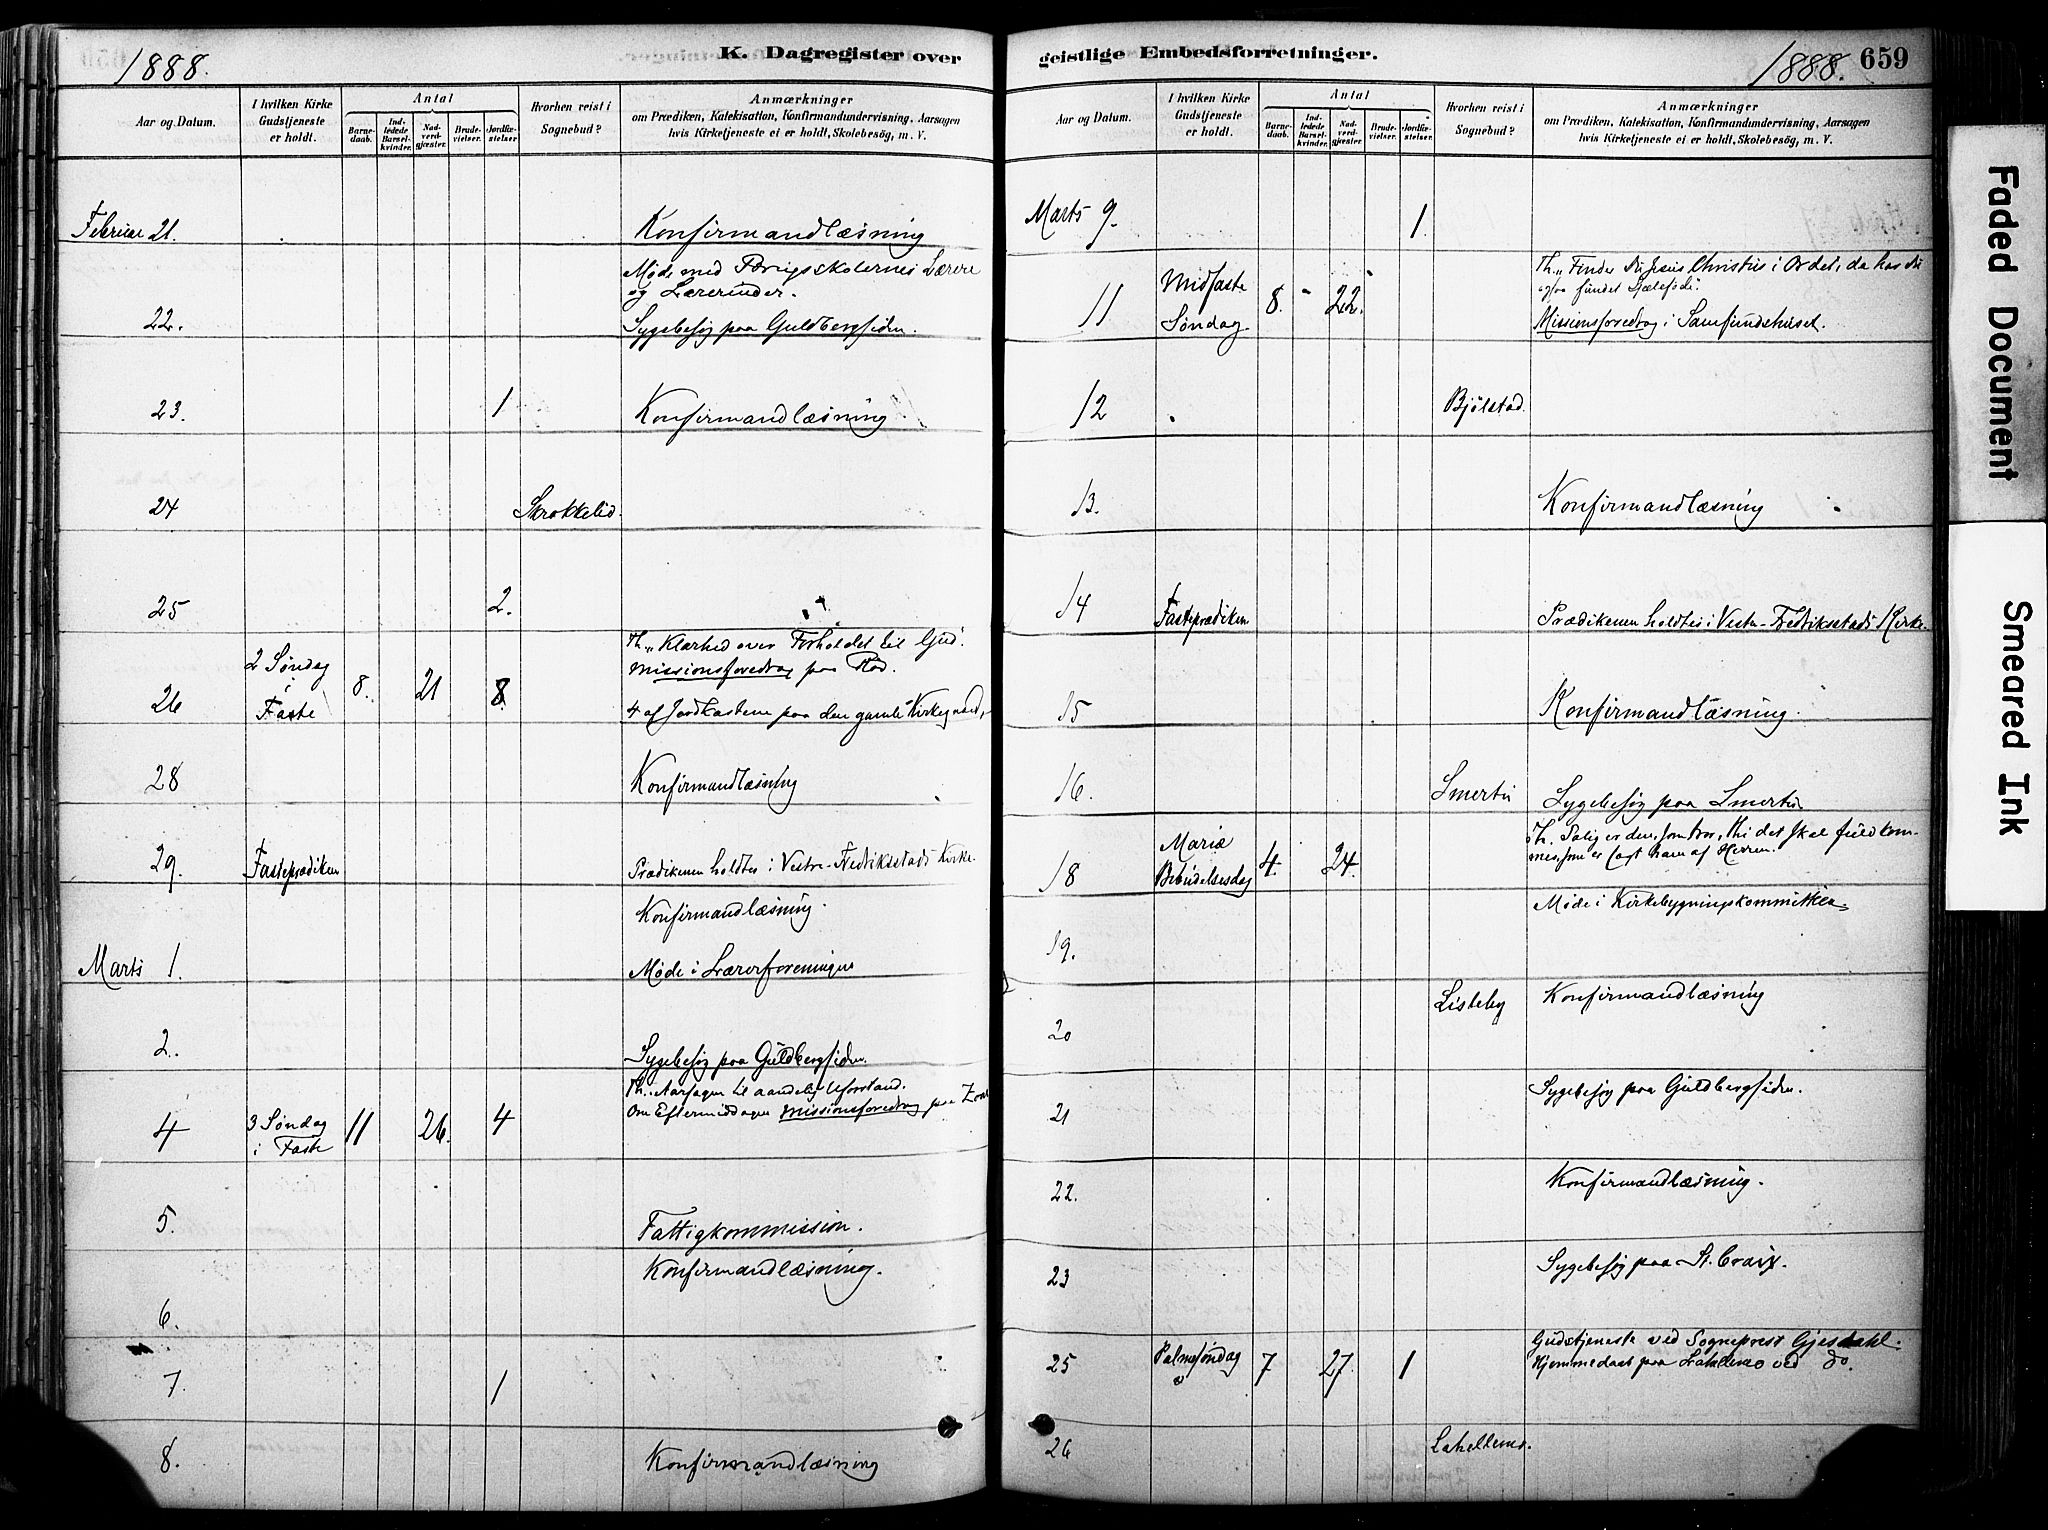 1888.
K. Dagregister over
Aar og Datum.
I hvilken Kirke Gudstjeneste er holdt.
Antal
Barnedaab.
Indledede Barselkvinder.
Nadverdgjæster.
Brudevielser.
Jordfæstelser.
Hvorhen reist i Sognebud?
Anmærkninger
om Prædiken, Katekisation, Konfirmandundervisning, Aarsagen
hvis Kirketjeneste ei er holdt, Skolebesög, m. V.
Februar 21. Konfirmandlæsning
Møde med Lærere
og Lærerinder.
22. Sygebesøg paa Guldbergsiden.
23. 1 Konfirmandlæsning.
24 Skrokkelid.
25 2.
Th. "Klarhed over Forholdet til Gud".
2 Søndag Missionsforedrag paa
26 i Faste 8. 21 8. 4 af Jordkastene paa den gamle Kirkegaard.
28 Konfirmandlæsning
29. Fasteprædiken Prædikenen holdtes i Vestre-Fredriksstads Kirke.
Konfirmandlæsning.
Marts 1. Møde i Lærerforeningen
2. Sygebesøg paa Guldbergsiden.
Th. Aarsagen til aandelig Uforstand.
Om Eftermiddagen Missionsforedrag paa
4 3 Søndag i Faste 11 26. 4
5. Fattigkommission.
6. Konfirmandlæsning.
7. 1
8. Konfirmandlæsning
geistlige Embedsforretninger.
1888. 659
Aar og Datum.
I hvilken Kirke Gudstjeneste er holdt.
Antal
Barnedaab.
Indledede Barselkvinder.
Nadverdgjæster.
Brudevielser.
Jordfæstelser.
Hvorhen reist i Sognebud?
Anmærkninger
om Prædiken, Katekisation, Konfirmandundervisning, Aarsagen
hvis Kirketjeneste ei er holdt, Skolebesög, m. V.
Marts 9. 1.
Th. "Finder Du Jesus Christus i Ordet, da har du
ogsaa fundet Sjæleføde".
11 Midfaste Søndag. 8. 22. Missionsforedrag i Samfundshuset.
12 Bjølstad.
13. Konfirmandlæsning
14 Fasteprædiken Prædikenen holdtes i Vestre-Fredriksstads Kirke.
15 Konfirmandlæsning.
16. Smertu Sygebesøg paa Smertu
Th. Salig er den, som tror, thi det skal fuldkommes, som er sagt ham af Herren.
18 Mariæ Bebudelsesdag 4. 24.
19. Møde i Kirkebygningskommitteen.
20 Lisleby Konfirmandlæsning
21 Sygebesøg paa Guldbergsiden.
22. Konfirmandlæsning.
23 Sygebesøg paa St. Croix.
25 Palmesøndag 7 27. 1 Gudstjeneste ved Sogneprest Gjesdahl.
Hjemmedaab paa ved do.
26
Faded Document
Smeared Ink